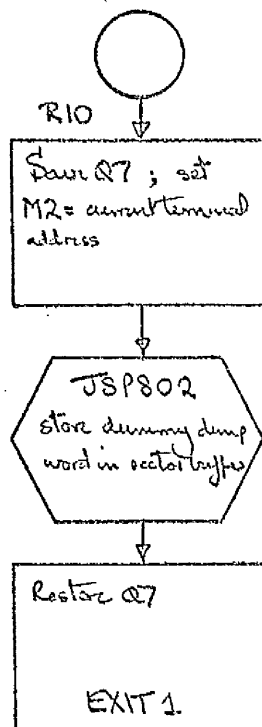 R10
Save Q7 ; set
M2 = current terminal
address
JSP802
store dummy dump
word in sector buffer
Restore Q7
EXIT 1.